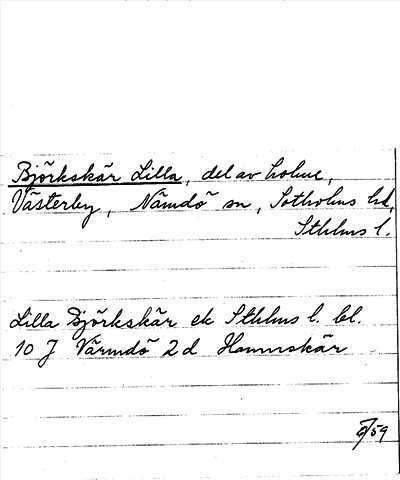 Björkskär Lilla, del av holme,
Västerby, Nämdö sn, Sotholms hd,
Sthlms l.
Lilla Björkskär ek Sthlms l. bl.
10 J Värmdö 2 d Hamnskär
/59